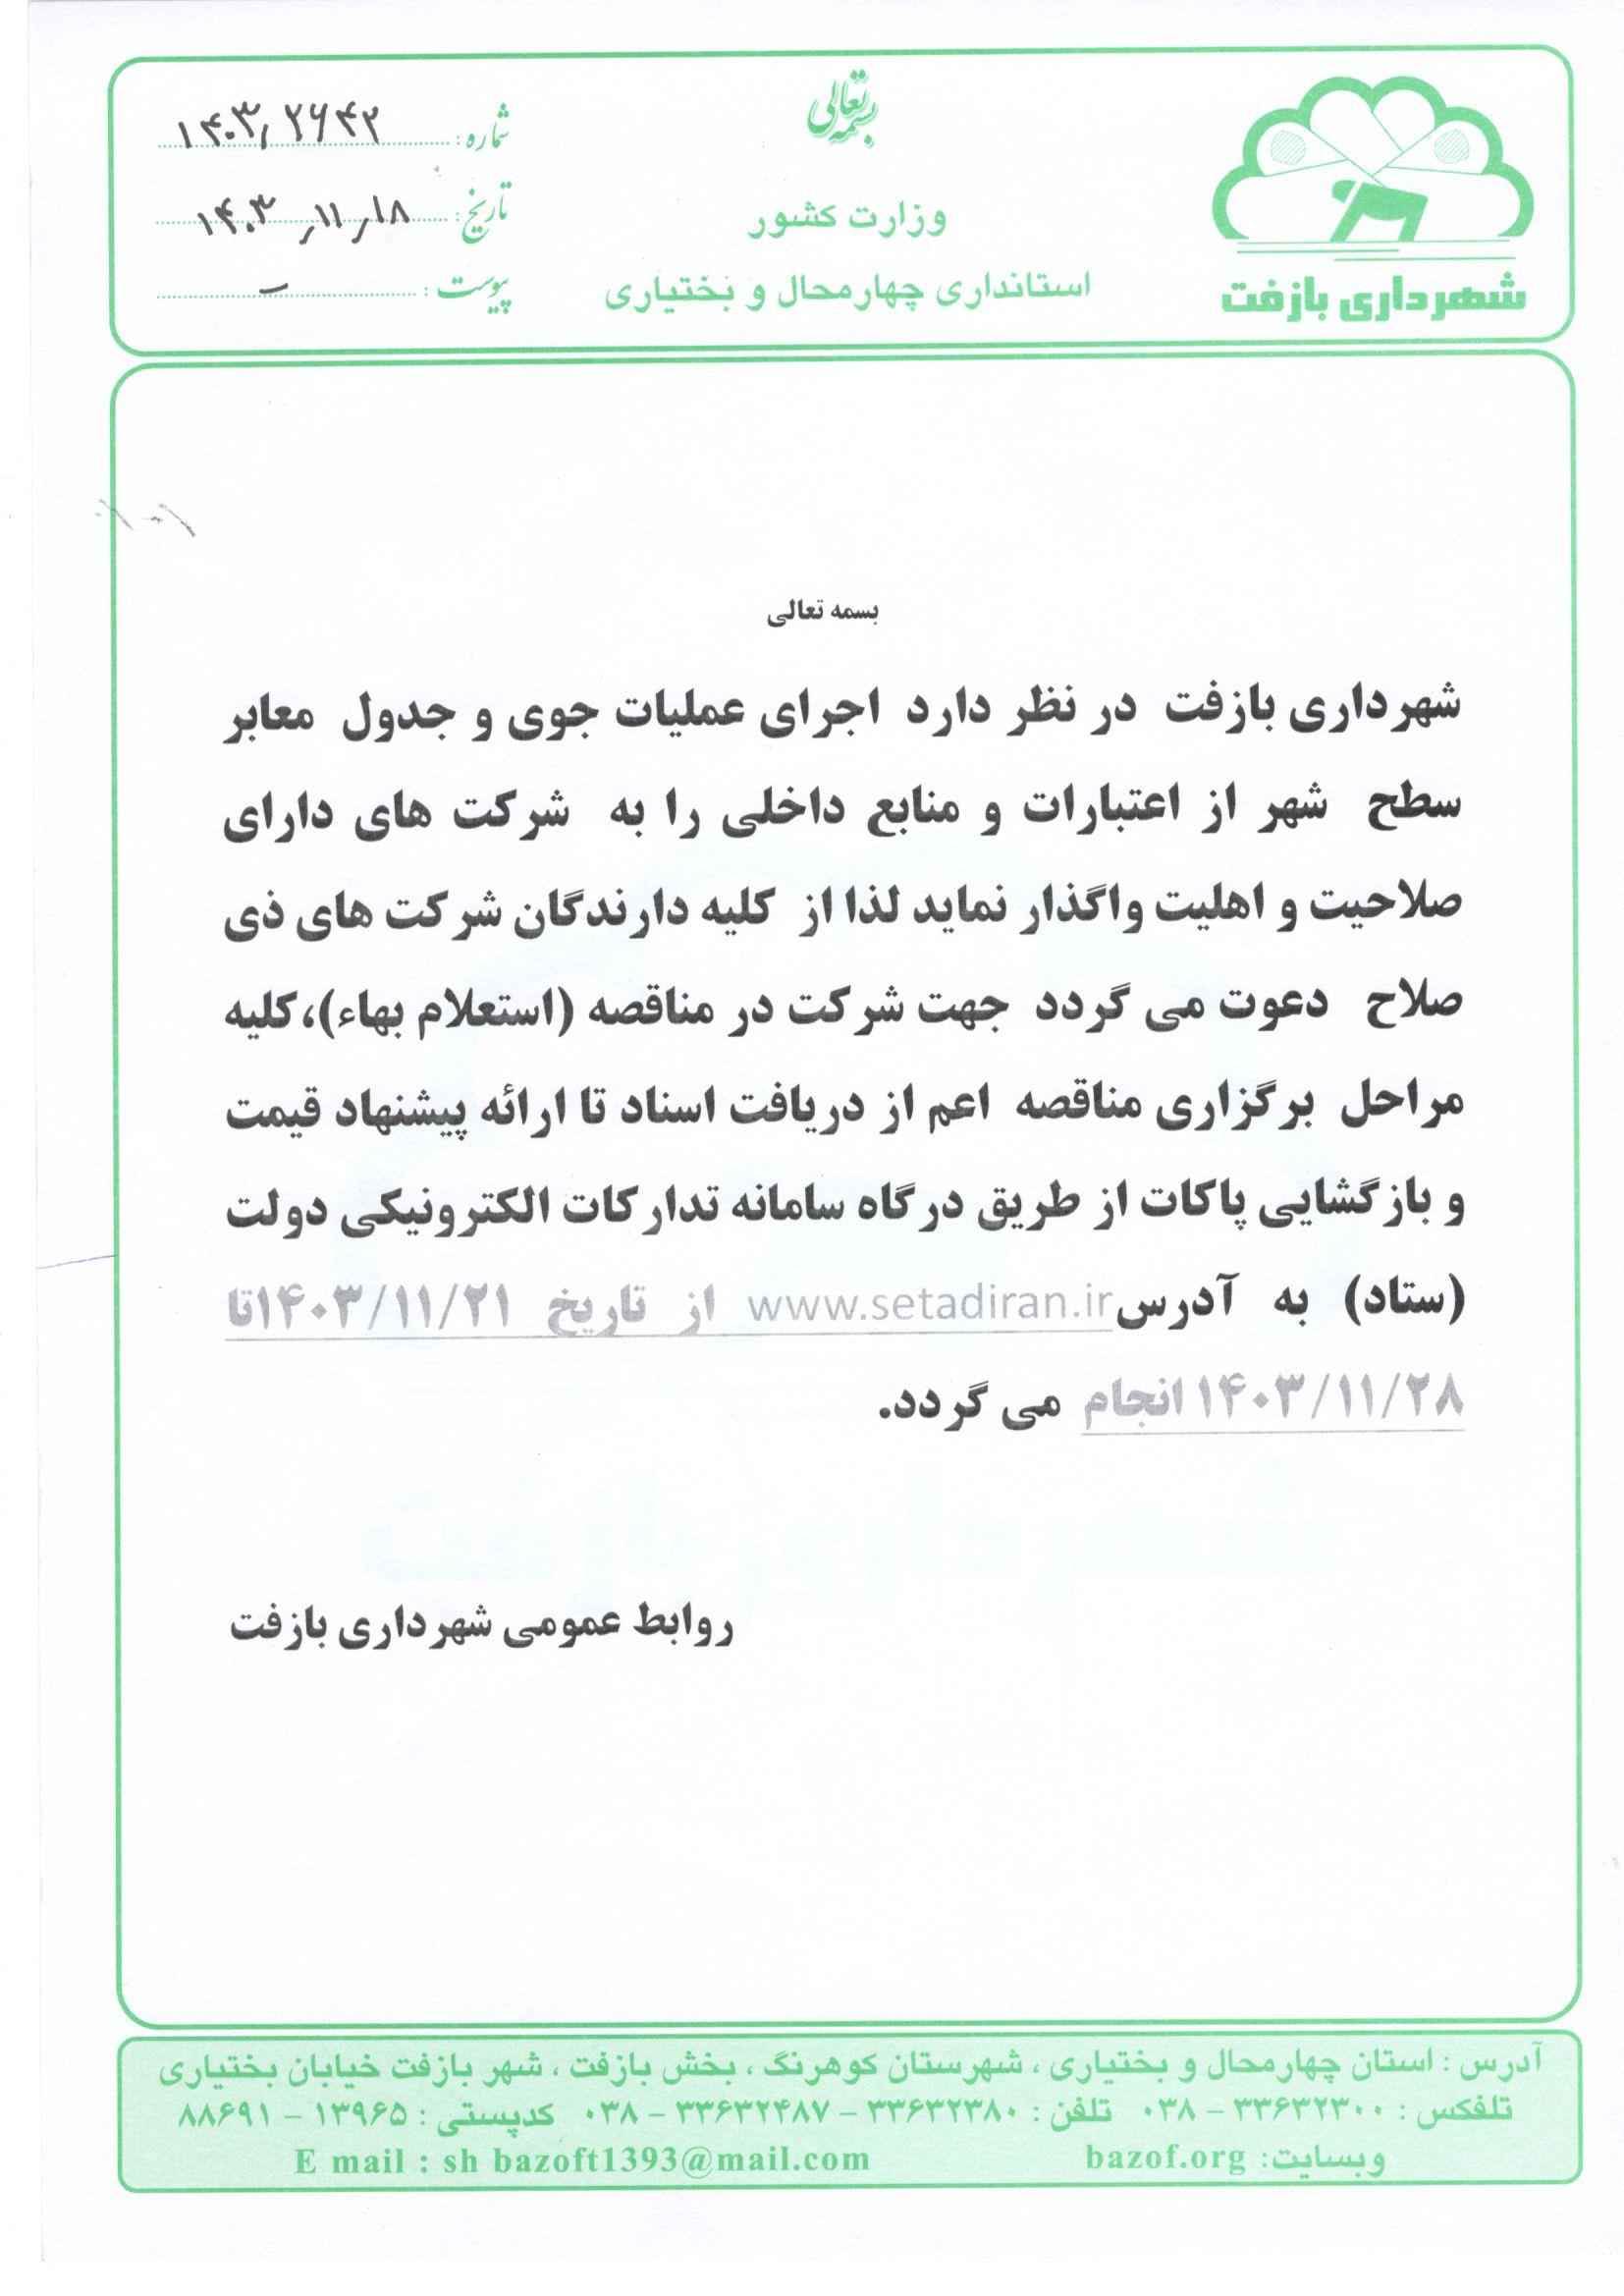 بسمه تعالی
شماره: ۱۴۰۳٫۲۶۴۲
وزارت کشور
تاریخ: ۱۴۰۳٫۱۱٫۱۸
استانداری چهارمحال و بختیاری
پیوست: -
شهرداری بازفت
بسمه تعالی
شهرداری بازفت در نظر دارد اجرای عملیات جوی و جدول معابر
سطح شهر از اعتبارات و منابع داخلی را به شرکت های دارای
صلاحیت و اهلیت واگذار نماید لذا از کلیه دارندگان شرکت های ذی
صلاح دعوت می گردد جهت شرکت در مناقصه (استعلام بهاء)،کلیه
مراحل برگزاری مناقصه اعم از دریافت اسناد تا ارائه پیشنهاد قیمت
و بازگشایی پاکات از طریق درگاه سامانه تدارکات الکترونیکی دولت
(ستاد) به آدرس www.setadiran.ir از تاریخ ۱۴۰۳/۱۱/۲۱تا
۱۴۰۳/۱۱/۲۸انجام می گردد.
شهرداری بازفت
روابط عمومی شهرداری بازفت
آدرس : استان چهارمحال و بختیاری ، شهرستان کوهرنگ ، بخش بازفت ، شهر بازفت خیابان بختیاری
تلفکس : ۳۳۶۳۲۳۰۰ – ۰۳۸ تلفن : ۳۳۶۳۲۳۸۰ – ۳۳۶۳۲۴۸۷ – ۰۳۸ کدپستی : ۱۳۹۶۵ – ۸۸۶۹۱
وبسایت: bazof.org E mail : sh bazoft1393@mail.com